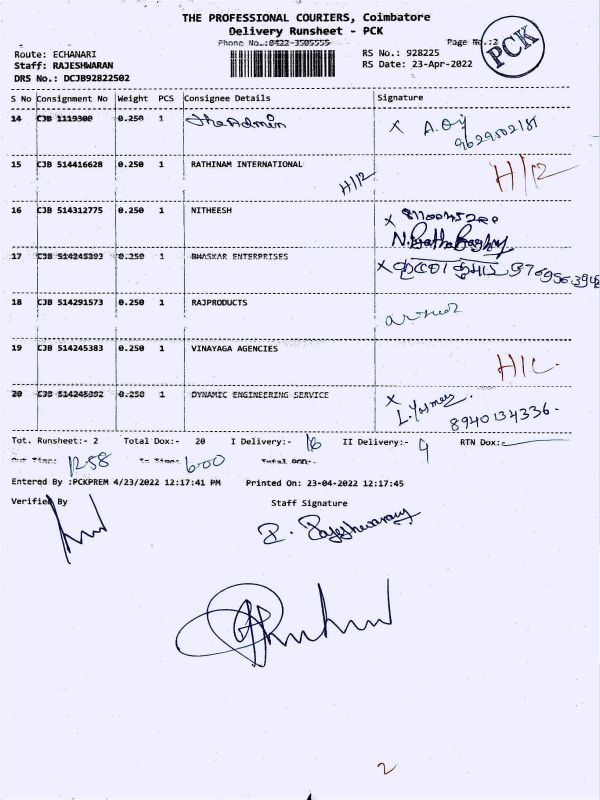 THE PROFESSIONAL COURIERS, Coimbatore
Delivery Runsheet - PCK
Phone No.:0422-3505555
Page No.:2
PCK
Route: ECHANARI
RS No.: 928225
Staff: RAJESHWARAN
RS Date: 23-Apr-2022
DRS No.: DCJB92822502
S No Consignment No Weight PCS Consignee Details Signature
14 CJB 1119300 0.250 1 The Admin
9629502181
15 CJB 514416628 0.250 1 RATHINAM INTERNATIONAL
H/12
H/12
16 CJB 514312775 0.250 1 NITHEESH
17 CJB 514245393 0.250 1 BHASKAR ENTERPRISES
18 CJB 514291573 0.250 1 RAJPRODUCTS
19 CJB 514245383 0.250 1 VINAYAGA AGENCIES
20 CJB 514245392 0.250 1 DYNAMIC ENGINEERING SERVICE
8940134336.
Tot. Runsheet:- 2 Total Dox:- 20 I Delivery:- 16 II Delivery:- 4 RTN Dox:-
Out Time: 12.58 In Time: 6.00 Total POD:-
Entered By :PCKPREM 4/23/2022 12:17:41 PM Printed On: 23-04-2022 12:17:45
Verified By Staff Signature
2